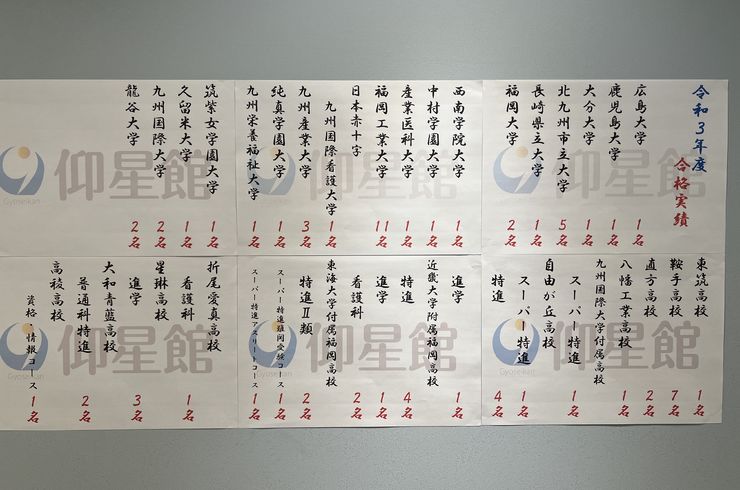 令和3年度
合格実績
広島大学 1名
鹿児島大学 1名
大分大学 1名
北九州市立大学 5名
長崎県立大学 1名
福岡大学 2名
仰星館
Gyoseikan
西南学院大学 1名
中村学園大学 1名
産業医科大学 1名
福岡工業大学 11名
日本赤十字
九州国際看護大学 1名
九州産業大学 3名
純真学園大学 1名
九州栄養福祉大学 1名
仰星館
Gyoseikan
筑紫女学園大学 1名
久留米大学 1名
九州国際大学 2名
龍谷大学 2名
仰星館
Gyoseikan
東筑高校 1名
鞍手高校 7名
直方高校 2名
八幡工業高校 1名
九州国際大学付属高校
スーパー特進 1名
自由が丘高校
スーパー特進 1名
特進 4名
仰星館
Gyoseikan
進学 1名
近畿大学附属福岡高校
特進 4名
進学 1名
看護科 2名
東海大学付属福岡高校
特進Ⅱ類 2名
スーパー特進難関受験コース 1名
スーパー特進アスリートコース 1名
仰星館
Gyoseikan
折尾愛真高校
看護科 1名
星琳高校
進学 3名
大和青藍高校
普通科特進 2名
高稜高校
資格・情報コース 1名
仰星館
Gyoseikan